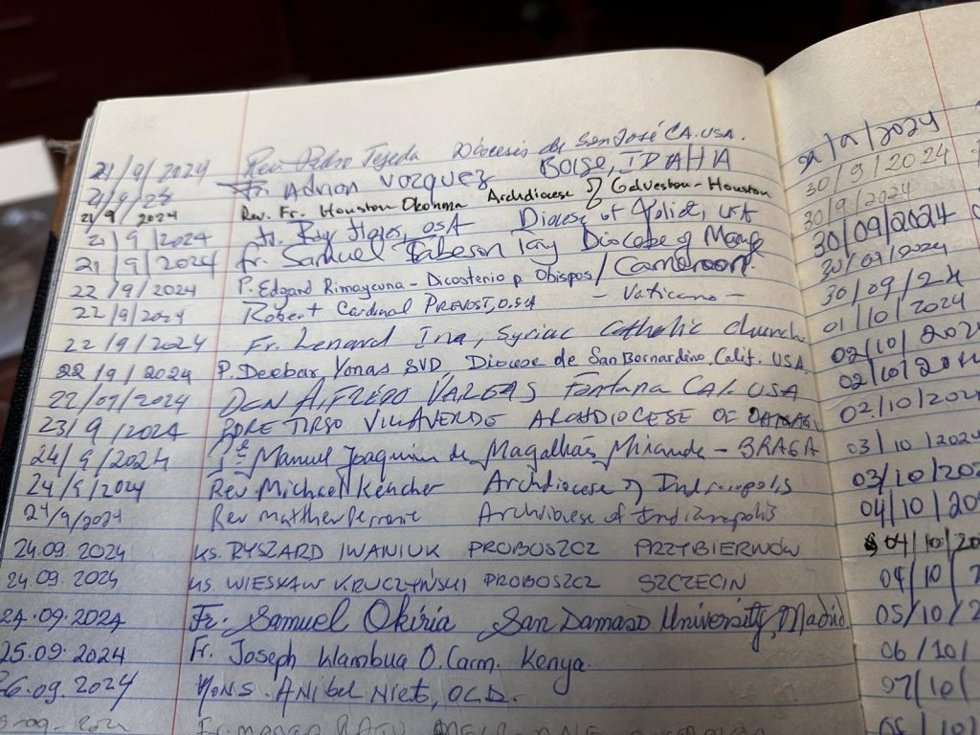 21/9/2024 Rev. Pedro Tejeda Diocesis de San José CA. USA.
Fr. Adrian Vazquez BOISE, IDAHA
21/9 2024 Rev. Fr. Houston Okonma Archdiocese of Galveston-Houston
21/9/2024 Fr. Ray Flores, OSA Diocese of Joliet,
21/9/2024 Fr. Samuel Diocese of
22/9/2024 P. Edgard Rimaycuna - Dicasterio p. Obispos / Cameroon.
22/9/2024 Robert Cardinal PREVOST, O.S.A - Vaticano -
22/9/2024 Fr. Lenard Ina, Syriac Catholic church
22/9/2024 P. Deebar Yonas SVD Diocese de San Bernardino, Calif. USA
22/09/2024 DCN ALFREDO VARGAS Fontana CAL. USA
23/9/2024 TIRSO VILLAVERDE ARCHDIOCESE OF
24/9/2024 Pe Manuel Joaquim de Magalhães Miranda - BRAGA
24/9/2024 Rev. Michael Keucher Archdiocese of Indianapolis
24/9/2024 Rev Matthew Perronie Archdiocese of Indianapolis
24.09.2024 KS. RYSZARD IWANIUK PROBOSZCZ PRZYBIERNÓW
24.09.2024 KS. WIESŁAW KRUCZYŃSKI PROBOSZCZ SZCZECIN
24.09.2024 Fr. Samuel Okiria San Damaso University, Madrid
25.09.2024 Fr. Joseph Wambua O.Carm. Kenya.
26.09.2024 MONS. ANIBAL Nieto, OCD.
30/9/2024
30/9/2024
30/09/2024
30/09/2024
30/09/24
01/10/2024
02/10/202
02/10/20
02/10/202
03/10/2024
03/10/202
04/10/20
04/10/20
04/10/2
05/10/2
06/10/
07/10/